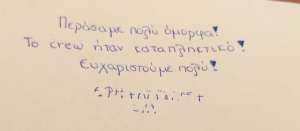 Περάσαμε πολύ όμορφα!
Το crew ήταν καταπληκτικό!
Ευχαριστούμε πολύ!